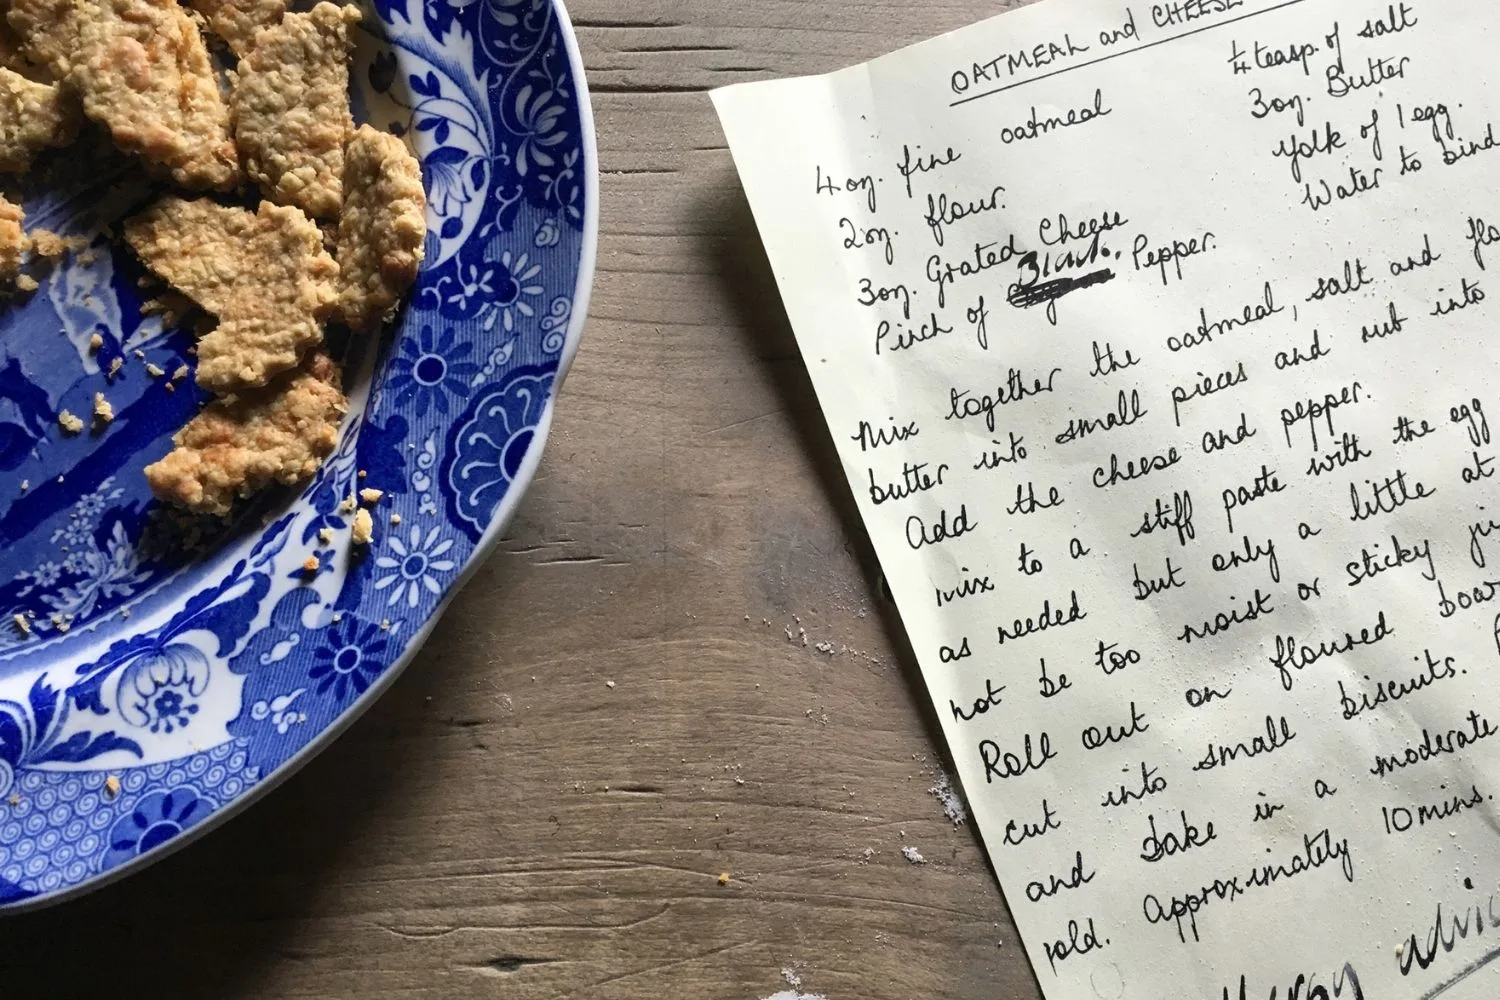 OATMEAL and CHEESE
4 oz. fine oatmeal
2oz. flour.
3oz. Grated Cheese
Pinch of Black. Pepper.
1/4 teasp. of salt
3oz. Butter
Yolk of 1 egg.
Water to bind
Mix together the oatmeal, salt and flo
butter into small pieces and rub into
Add the cheese and pepper.
mix to a stiff paste with the egg
as needed but only a little at
not be too moist or sticky
Roll out on floured boar
cut into small biscuits.
and bake in a moderate
Approximately 10 mins.
advic